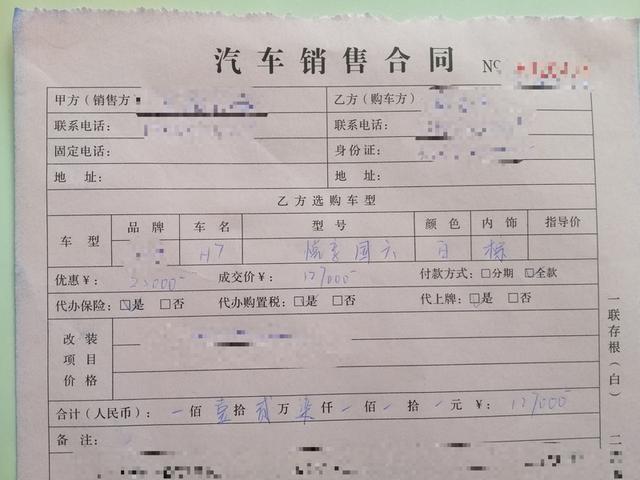 汽车销售合同 NO
甲方（销售方 乙方（购车方）
联系电话： 联系电话：
固定电话： 身份证：
地 址： 地 址：
乙方选购车型
车 型 品 牌 车 名 型 号 颜 色 内 饰 指导价
H7 国六 白 标
优惠¥： 成交价¥：127000 付款方式：□分期 ☑全款
代办保险：☑是 □否 代办购置税：☑是 □否 代上牌：☑是 □否
改 装
项 目
价 格
合计（人民币）： 一佰壹拾贰万柒仟一佰一拾一元 ¥：127000
备 注：
一联存根（白）
二